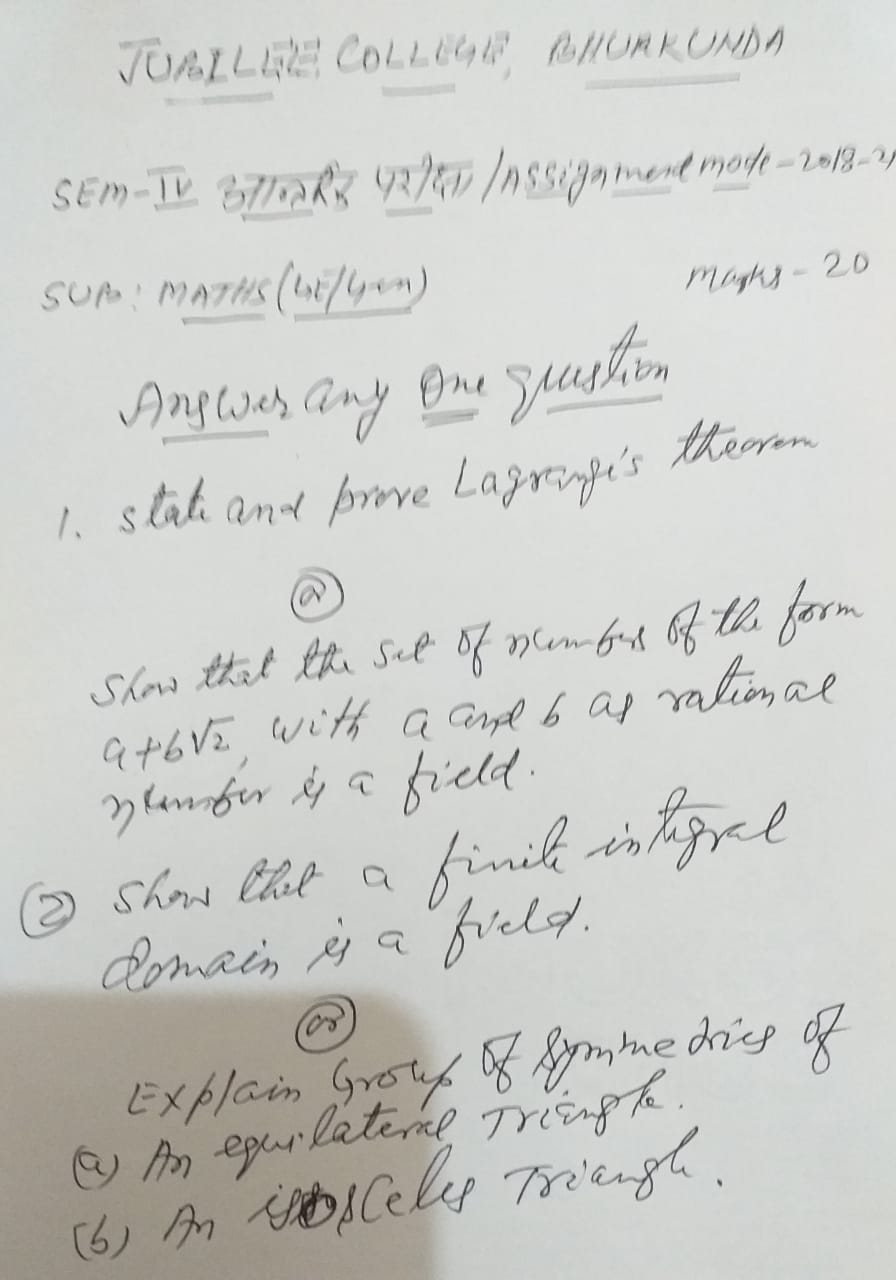 JUBILEE COLLEGE, BHURKUNDA
SEM-IV आन्तरिक परीक्षा /Assignment mode-2018-21
SUB: MATHS (GE/Gen)
Marks - 20
Answer any One question
1. State and prove Lagrange's theorem
or
Show that the set of numbers of the form
a+b√2, with a and b as rational
number is a field.
(2) Show that a finite integral
domain is a field.
or
Explain Group of Symmetries of
(a) An equilateral Triangle.
(b) An isosceles Triangle.